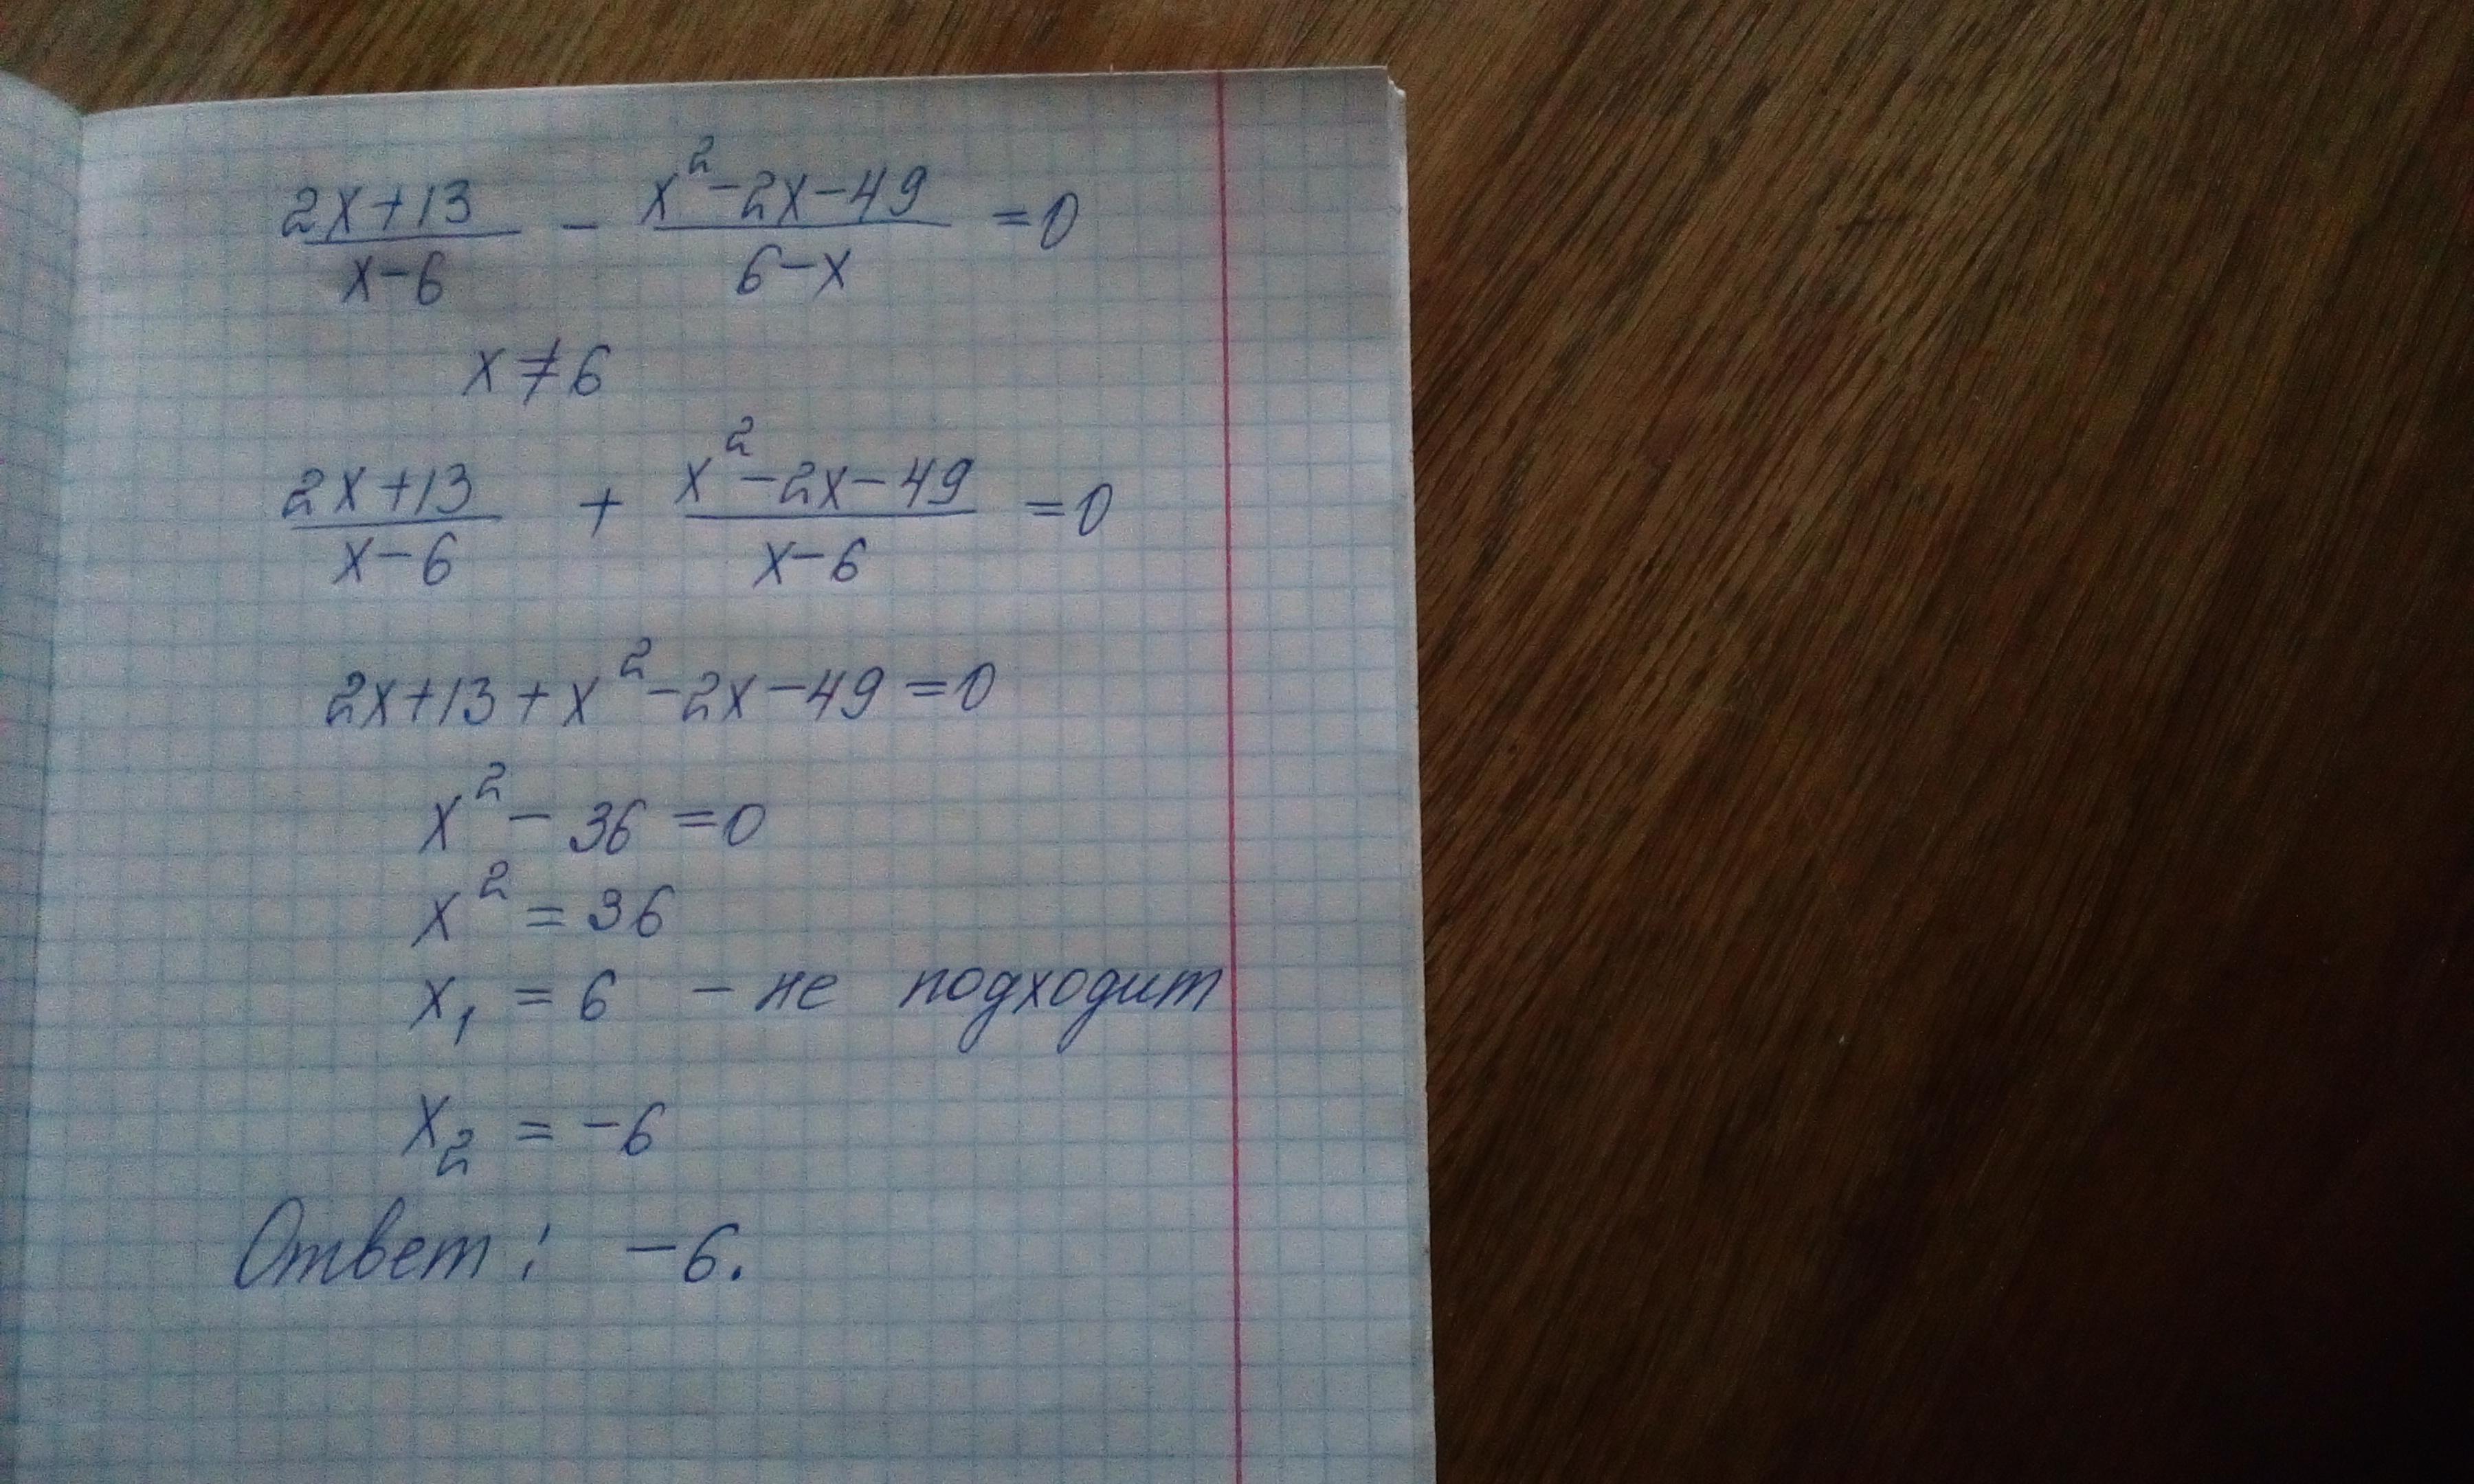 (2x+13)/(x-6) - (x²-2x-49)/(6-x) =0
x≠6
(2x+13)/(x-6) + (x²-2x-49)/(x-6) =0
2x+13+x²-2x-49=0
x²-36=0
x²=36
x₁ = 6 - не подходит
x₂ = -6
Ответ: -6.